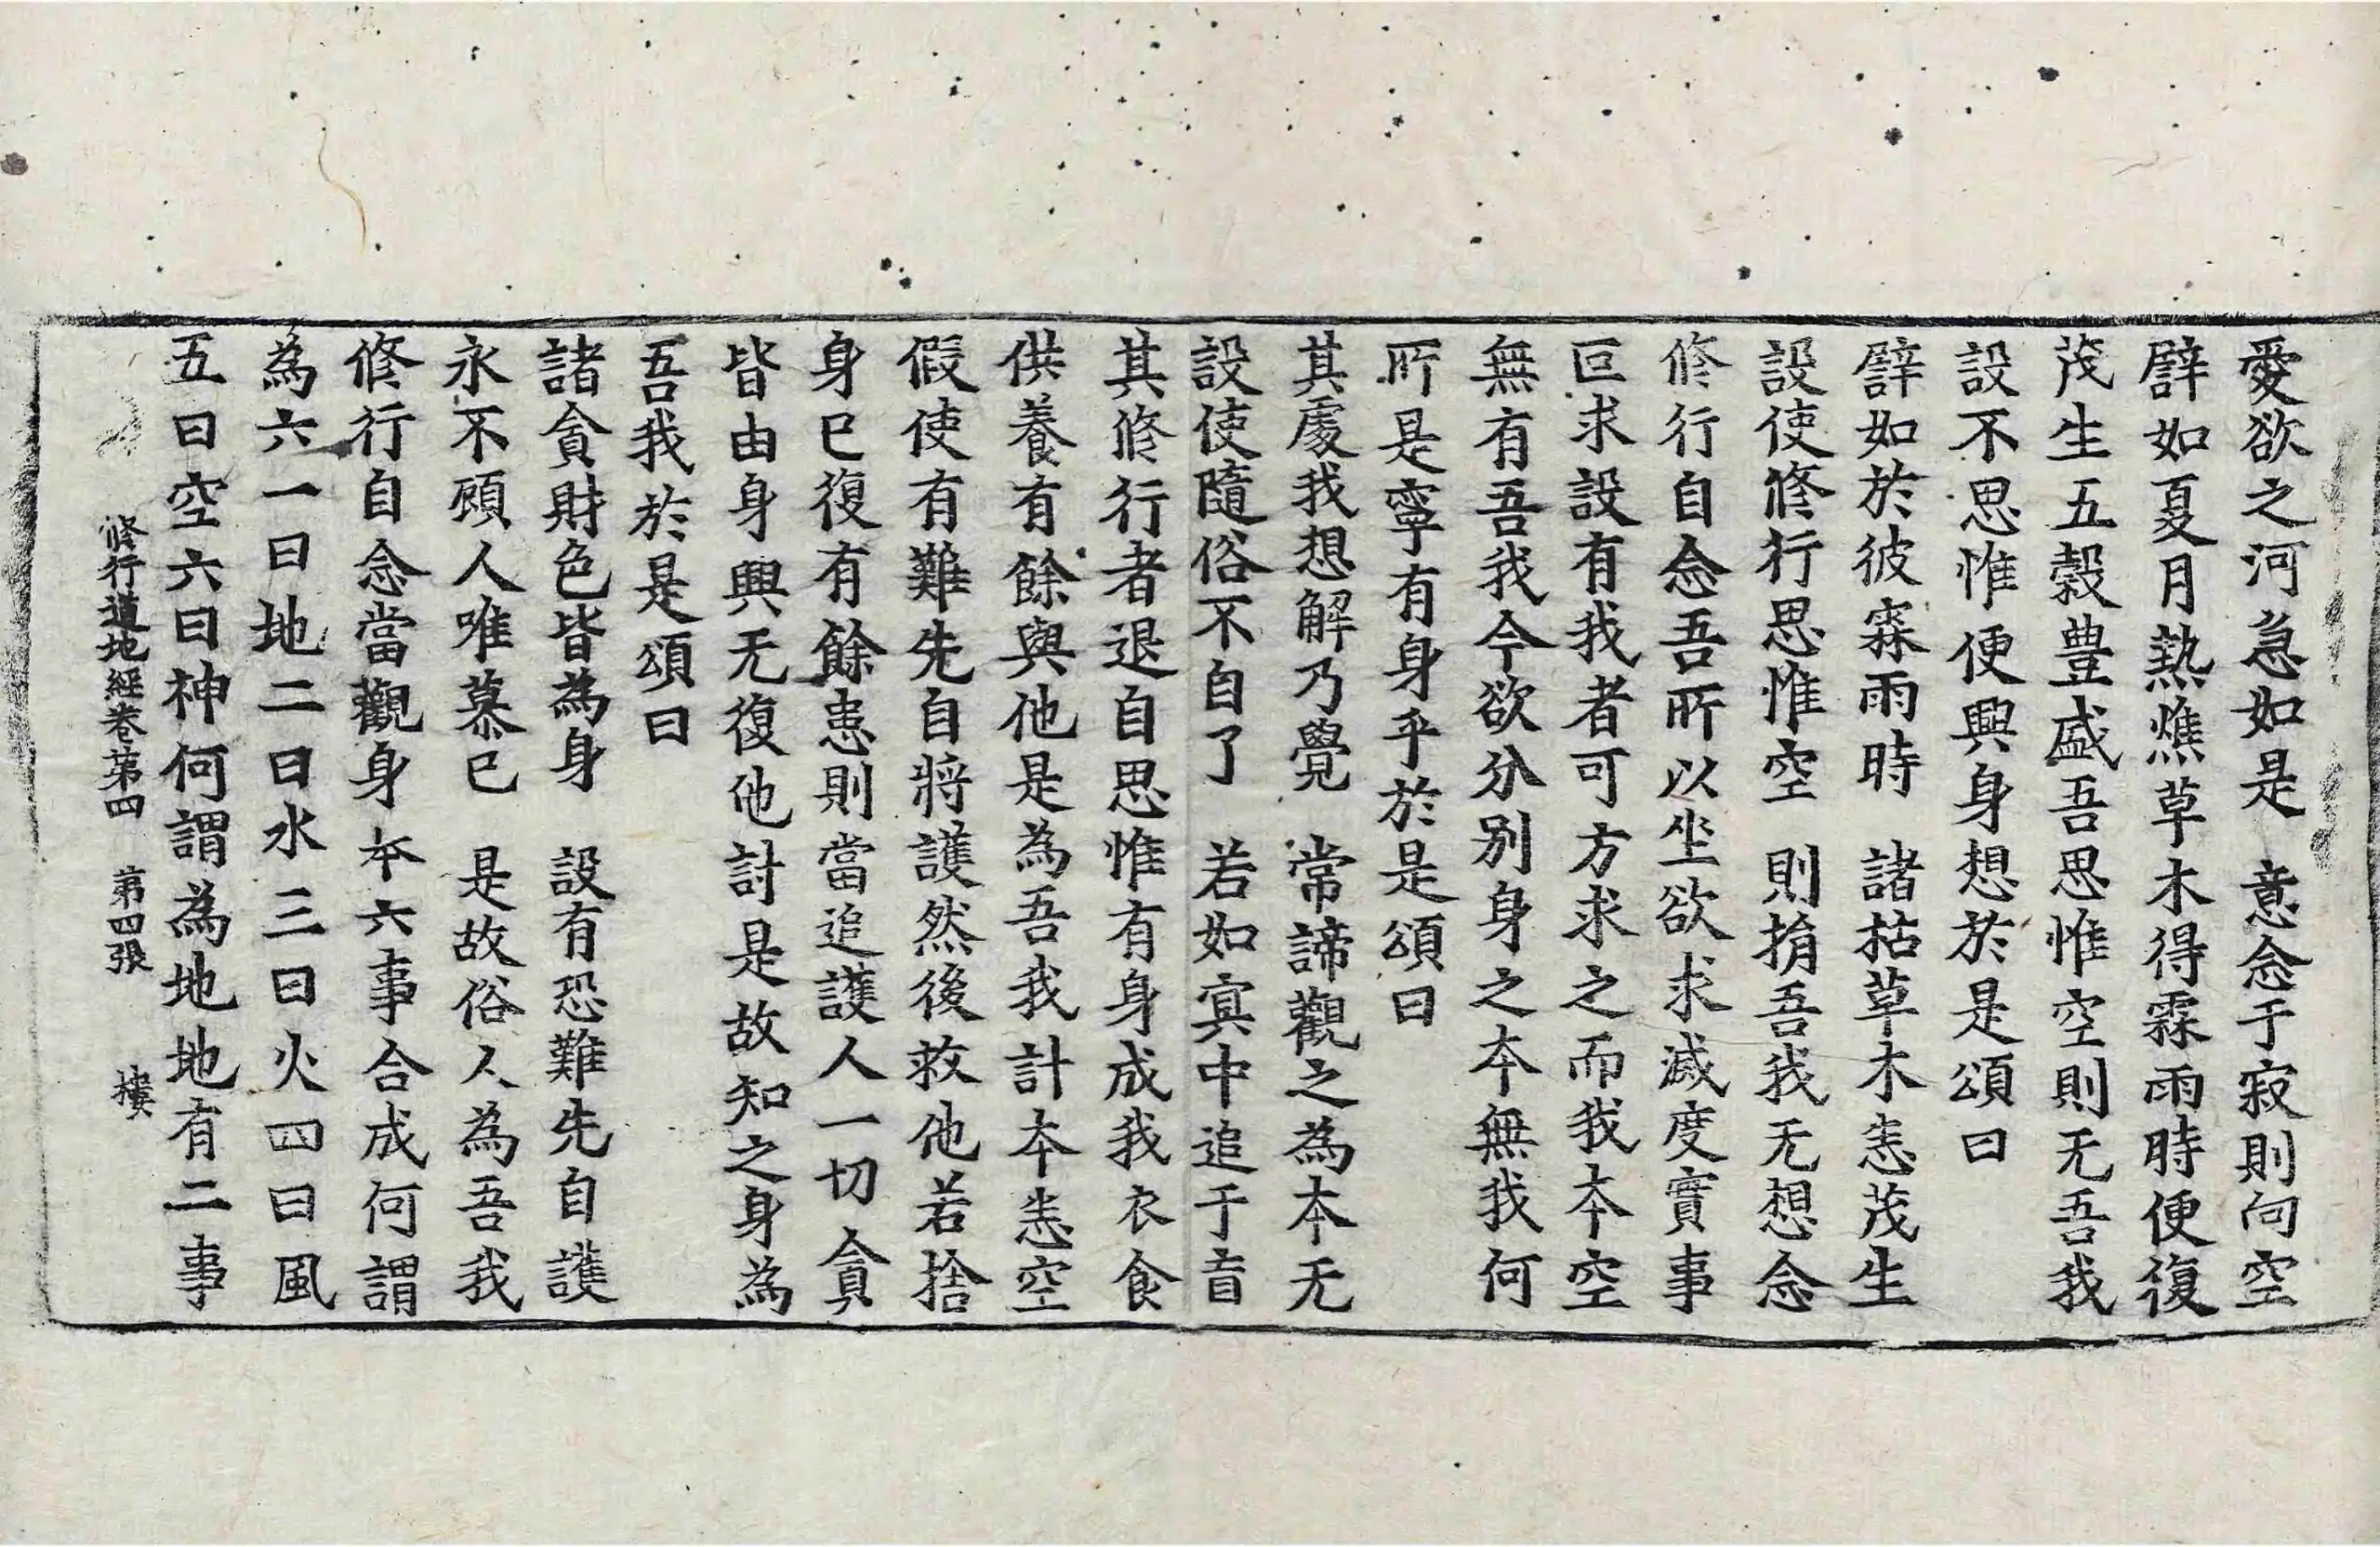 愛欲之河急如是　意念于寂則向空
譬如夏月熱燋草木得霖雨時便復
茂生五穀豊盛吾思惟空則无吾我
設不思惟便興身想於是頌曰
譬如於彼霖雨時　諸枯草木恚茂生
設使修行思惟空　則捐吾我无想念
修行自念吾所以坐欲求滅度實事
叵求設有我者可方求之而我本空
無有吾我今欲分別身之本無我何
所是寧有身乎於是頌曰
其處我想解乃覺　常諦觀之為本无
設使隨俗不自了　若如冥中追于盲
其修行者退自思惟有身成我衣食
供養有餘與他是為吾我計本恚空
假使有難先自將護然後救他若捨
身已復有餘患則當追護人一切貪
皆由身興无復他討是故知之身為
吾我於是頌曰
諸貪財色皆為身　設有恐難先自護
永不顧人唯慕已　是故俗人為吾我
修行自念當觀身本六事合成何謂
為六一曰地二曰水三曰火四曰風
五曰空六曰神何謂為地地有二事
修行道地經卷第四　第四張　樓